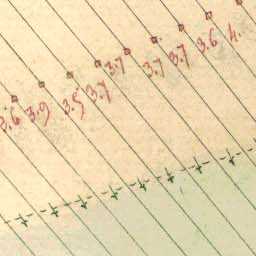 3.6 3.9 3.5 3.7 3.7 3.7 3.7 3.6 4.